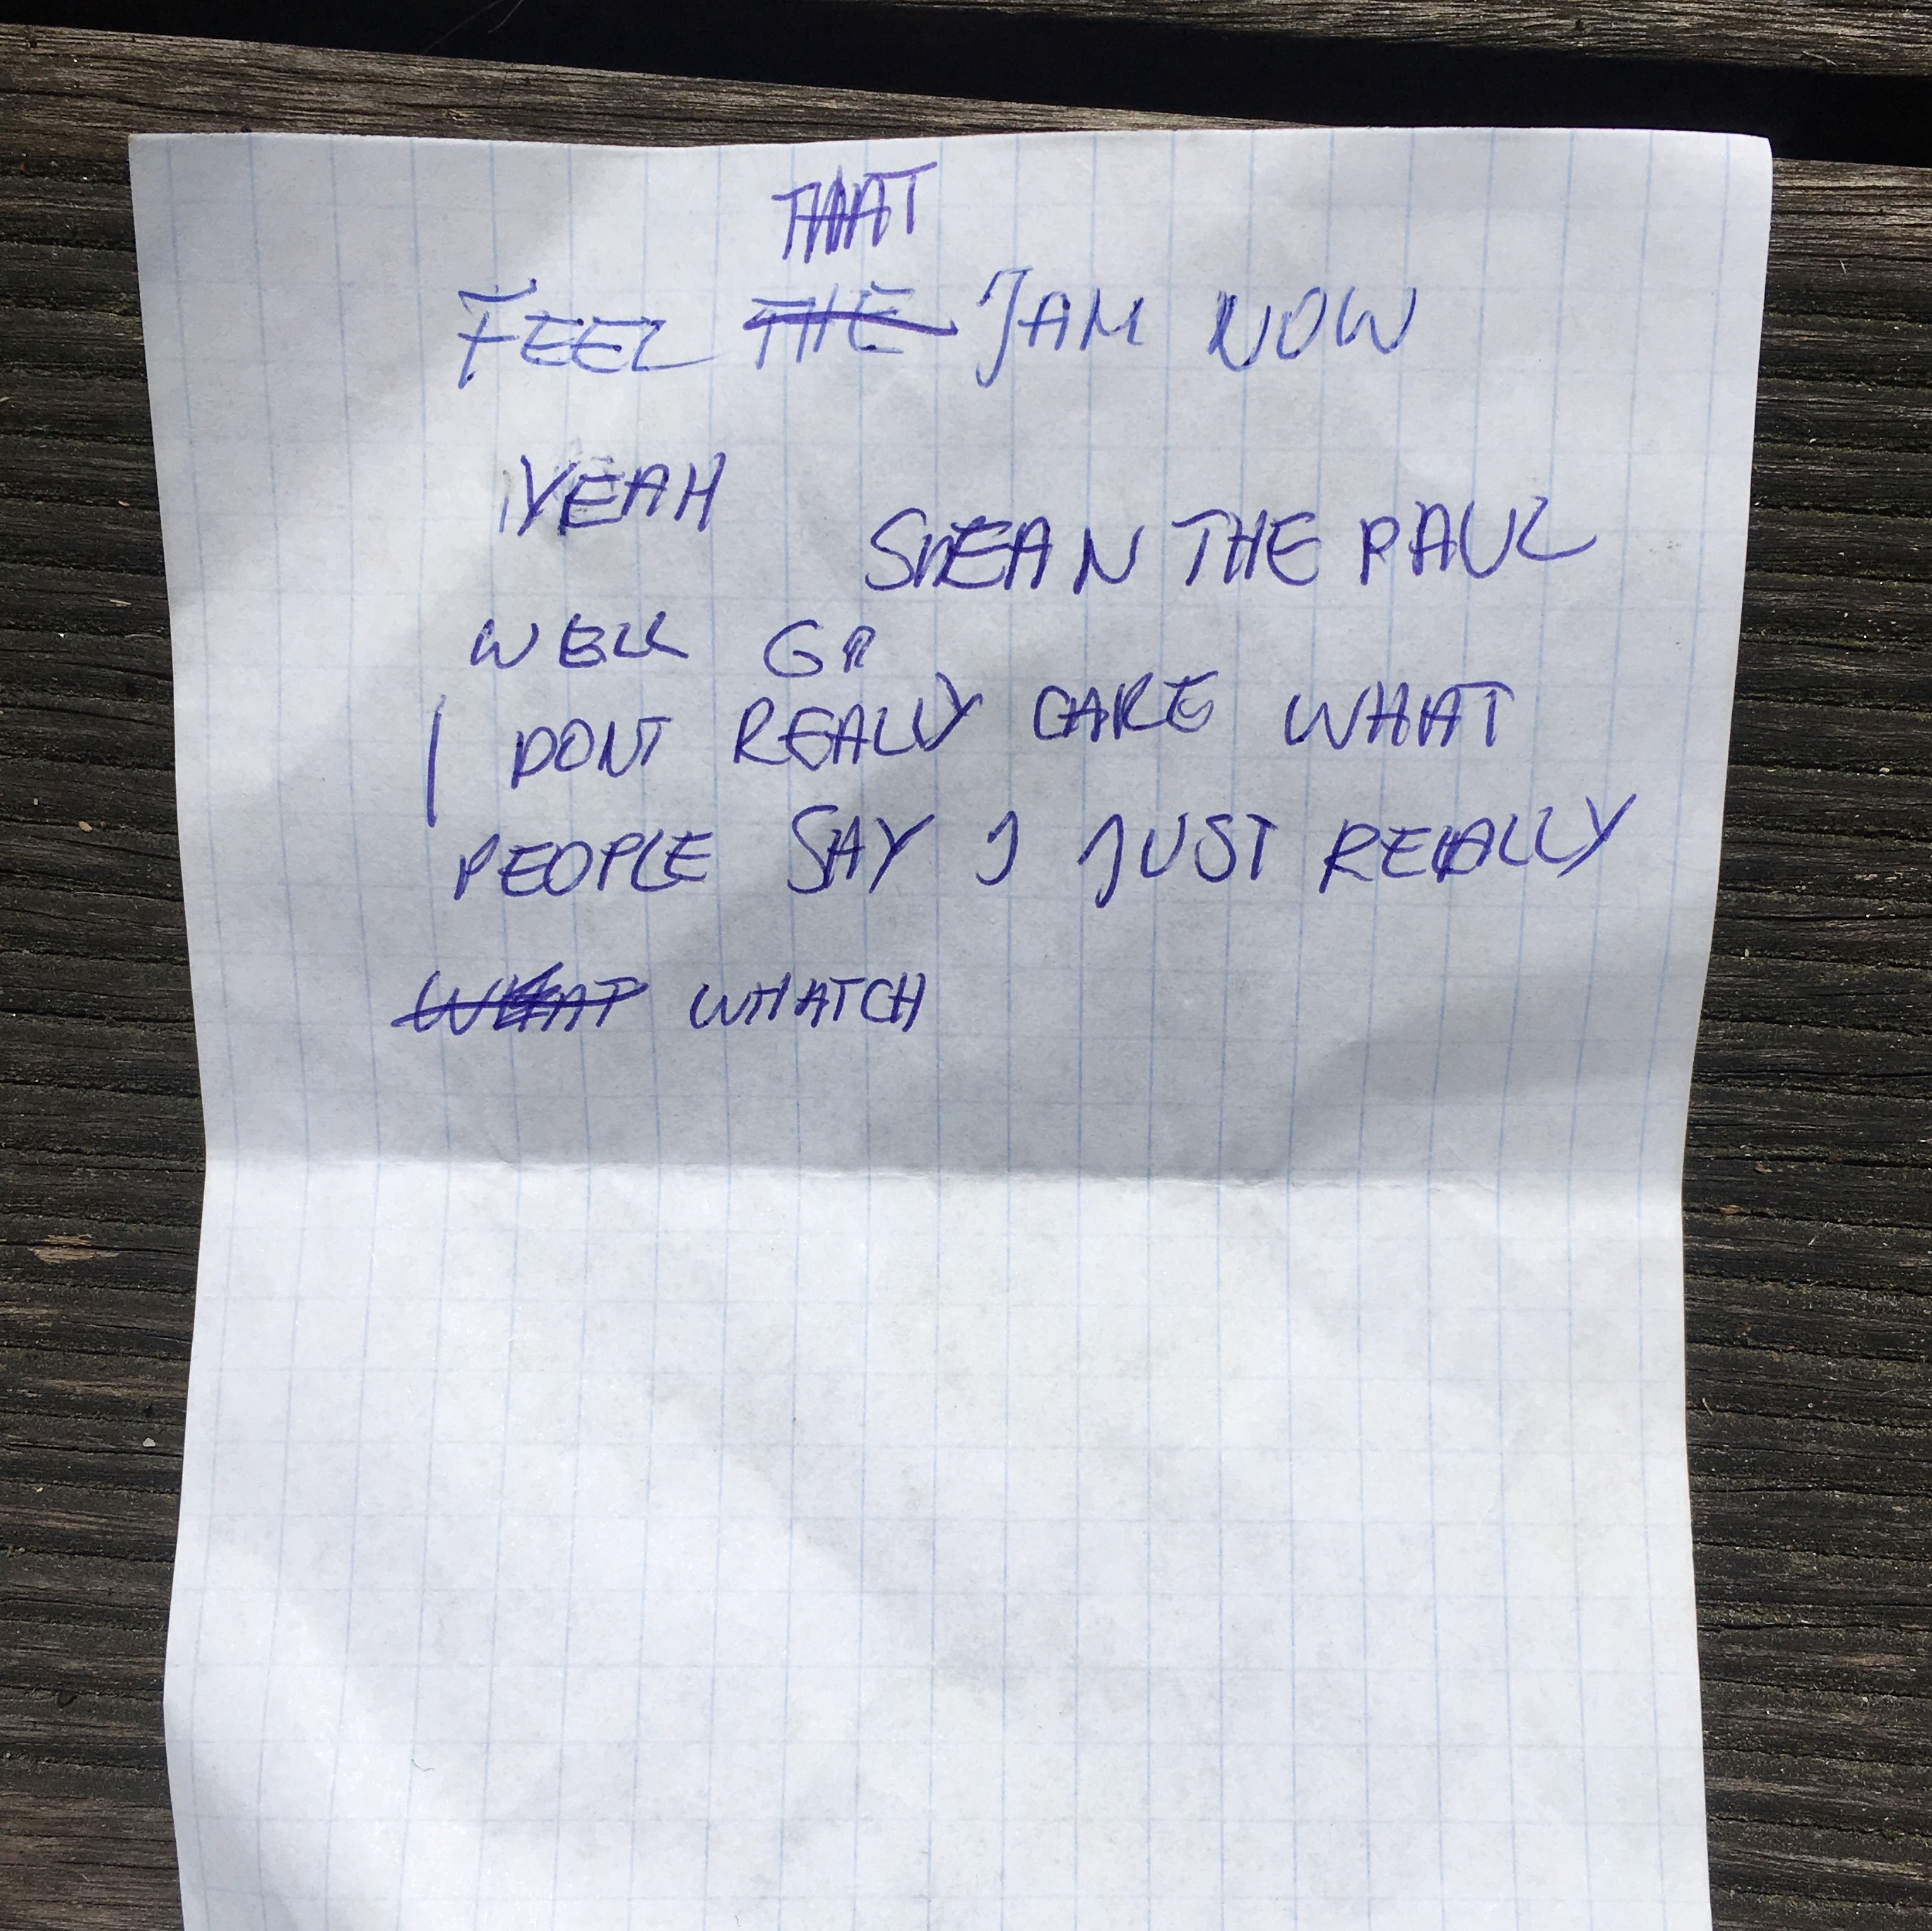 THAT
FEEL THE JAM NOW
YEAH
SHEAN THE PAUL
WELL
I DONT REALLY CARE WHAT
PEOPLE SAY I JUST REALLY
WHAT WHATCH